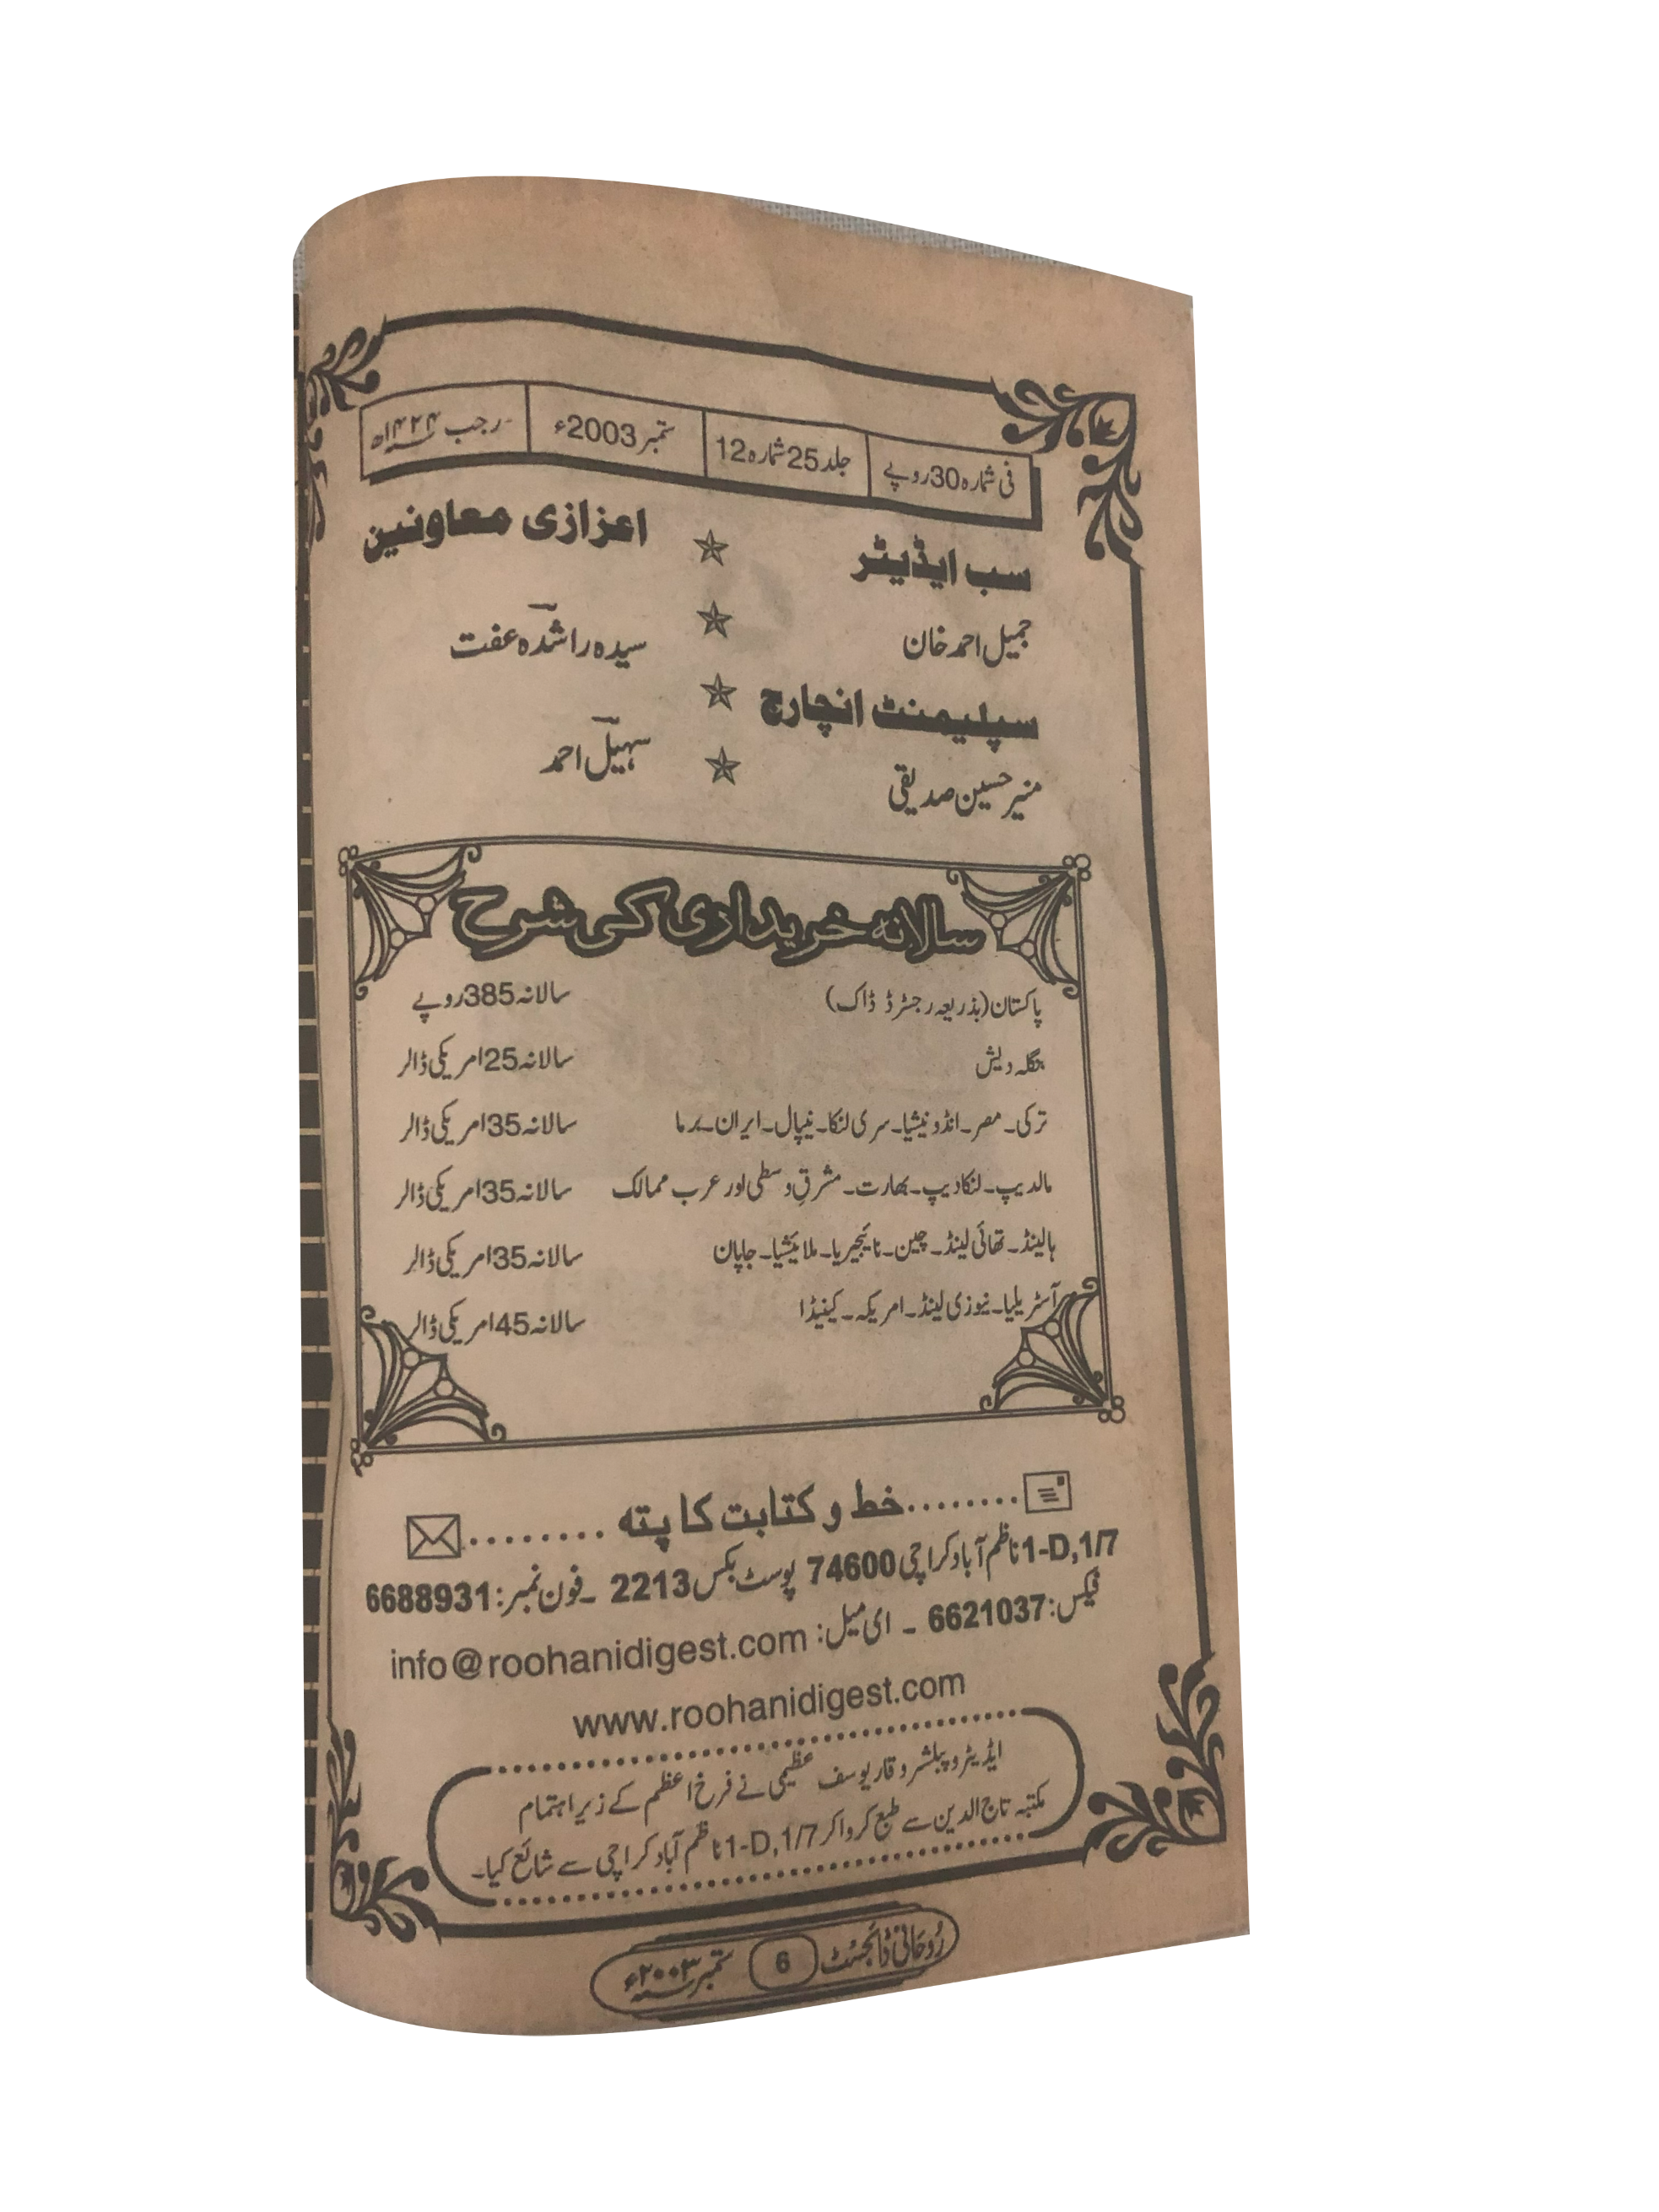 فی شمارہ 30 روپے | جلد 25 شمارہ 12 | ستمبر 2003ء | رجب ۱۴۲۴ھ
سب ایڈیٹر ☆ اعزازی معاونین
جمیل احمد خان ☆ سیدہ راشدہ عفت
سپلیمنٹ انچارج ☆
منیر حسین صدیقی ☆ سہیل احمد
سالانہ خریداری کی شرح
پاکستان (بذریعہ رجسٹرڈ ڈاک) سالانہ 385 روپے
بنگلہ دیش سالانہ 25 امریکی ڈالر
ترکی۔ مصر۔ انڈونیشیا۔ سری لنکا۔ نیپال۔ ایران۔ برما سالانہ 35 امریکی ڈالر
مالدیپ۔ لنکادیپ۔ بھارت۔ مشرقِ وسطٰی اور عرب ممالک سالانہ 35 امریکی ڈالر
ہالینڈ۔ تھائی لینڈ۔ چین۔ نائیجیریا۔ ملائیشیا۔ جاپان سالانہ 35 امریکی ڈالر
آسٹریلیا۔ نیوزی لینڈ۔ امریکہ۔ کینیڈا سالانہ 45 امریکی ڈالر
........خط و کتابت کا پتہ ........
1-D,1/7 ناظم آباد کراچی 74600 پوسٹ بکس 2213 ۔ فون نمبر: 6688931
فیکس: 6621037 ۔ ای میل: info@roohanidigest.com
www.roohanidigest.com
ایڈیٹر و پبلشر وقار یوسف عظیمی نے فرخ اعظم کے زیر اہتمام
مکتبہ تاج الدین سے طبع کروا کر 1-D,1/7 ناظم آباد کراچی سے شائع کیا۔
رُوحانی ڈائجسٹ 6 ستمبر ۲۰۰۳ء